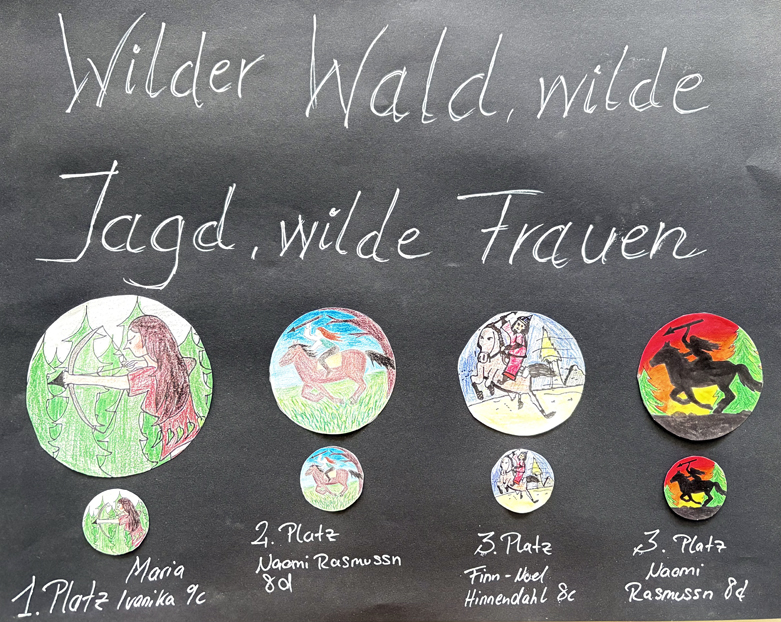 Wilder Wald, wilde
Jagd, wilde Frauen
1. Platz Maria
Ivanika 9c
2. Platz
Naomi Rasmussn
8d
3. Platz
Finn-Noel
Hinnendahl 8c
3. Platz
Naomi
Rasmussn 8d